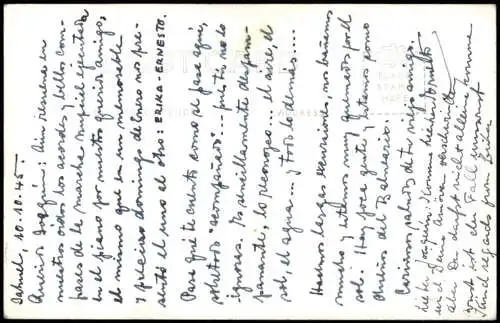 10.10.45
Querido Joaquín: Aún resuena en
nuestros oídos los acordes y bellos com-
pases de la marcha nupcial ejecutada
en el piano por nuestro querido amigo,
el mismo que en un memorable
y precioso domingo de enero nos pre-
sentó el uno al otro: ERIKA-ERNESTO.
Para qué te cuento como se pasa aquí,
sobretodo "acompañado"... pues tú, no lo
ignoras. Es sencillamente despam-
panante, lo reconozco... el aire, el
sol, el agua... y todo lo demás......
Hacemos largas excursiones, nos bañamos
mucho y estamos muy quemados por el
sol. Hay poca gente y estamos como
dueños del Balneario.
Cariñosos saludos de tu viejo amigo.
Lieber Joaquin! Komme hierher
und Deine amiga
aber Du darfst nicht alleine,
sonst ist der Fall
Sind regards from Erika